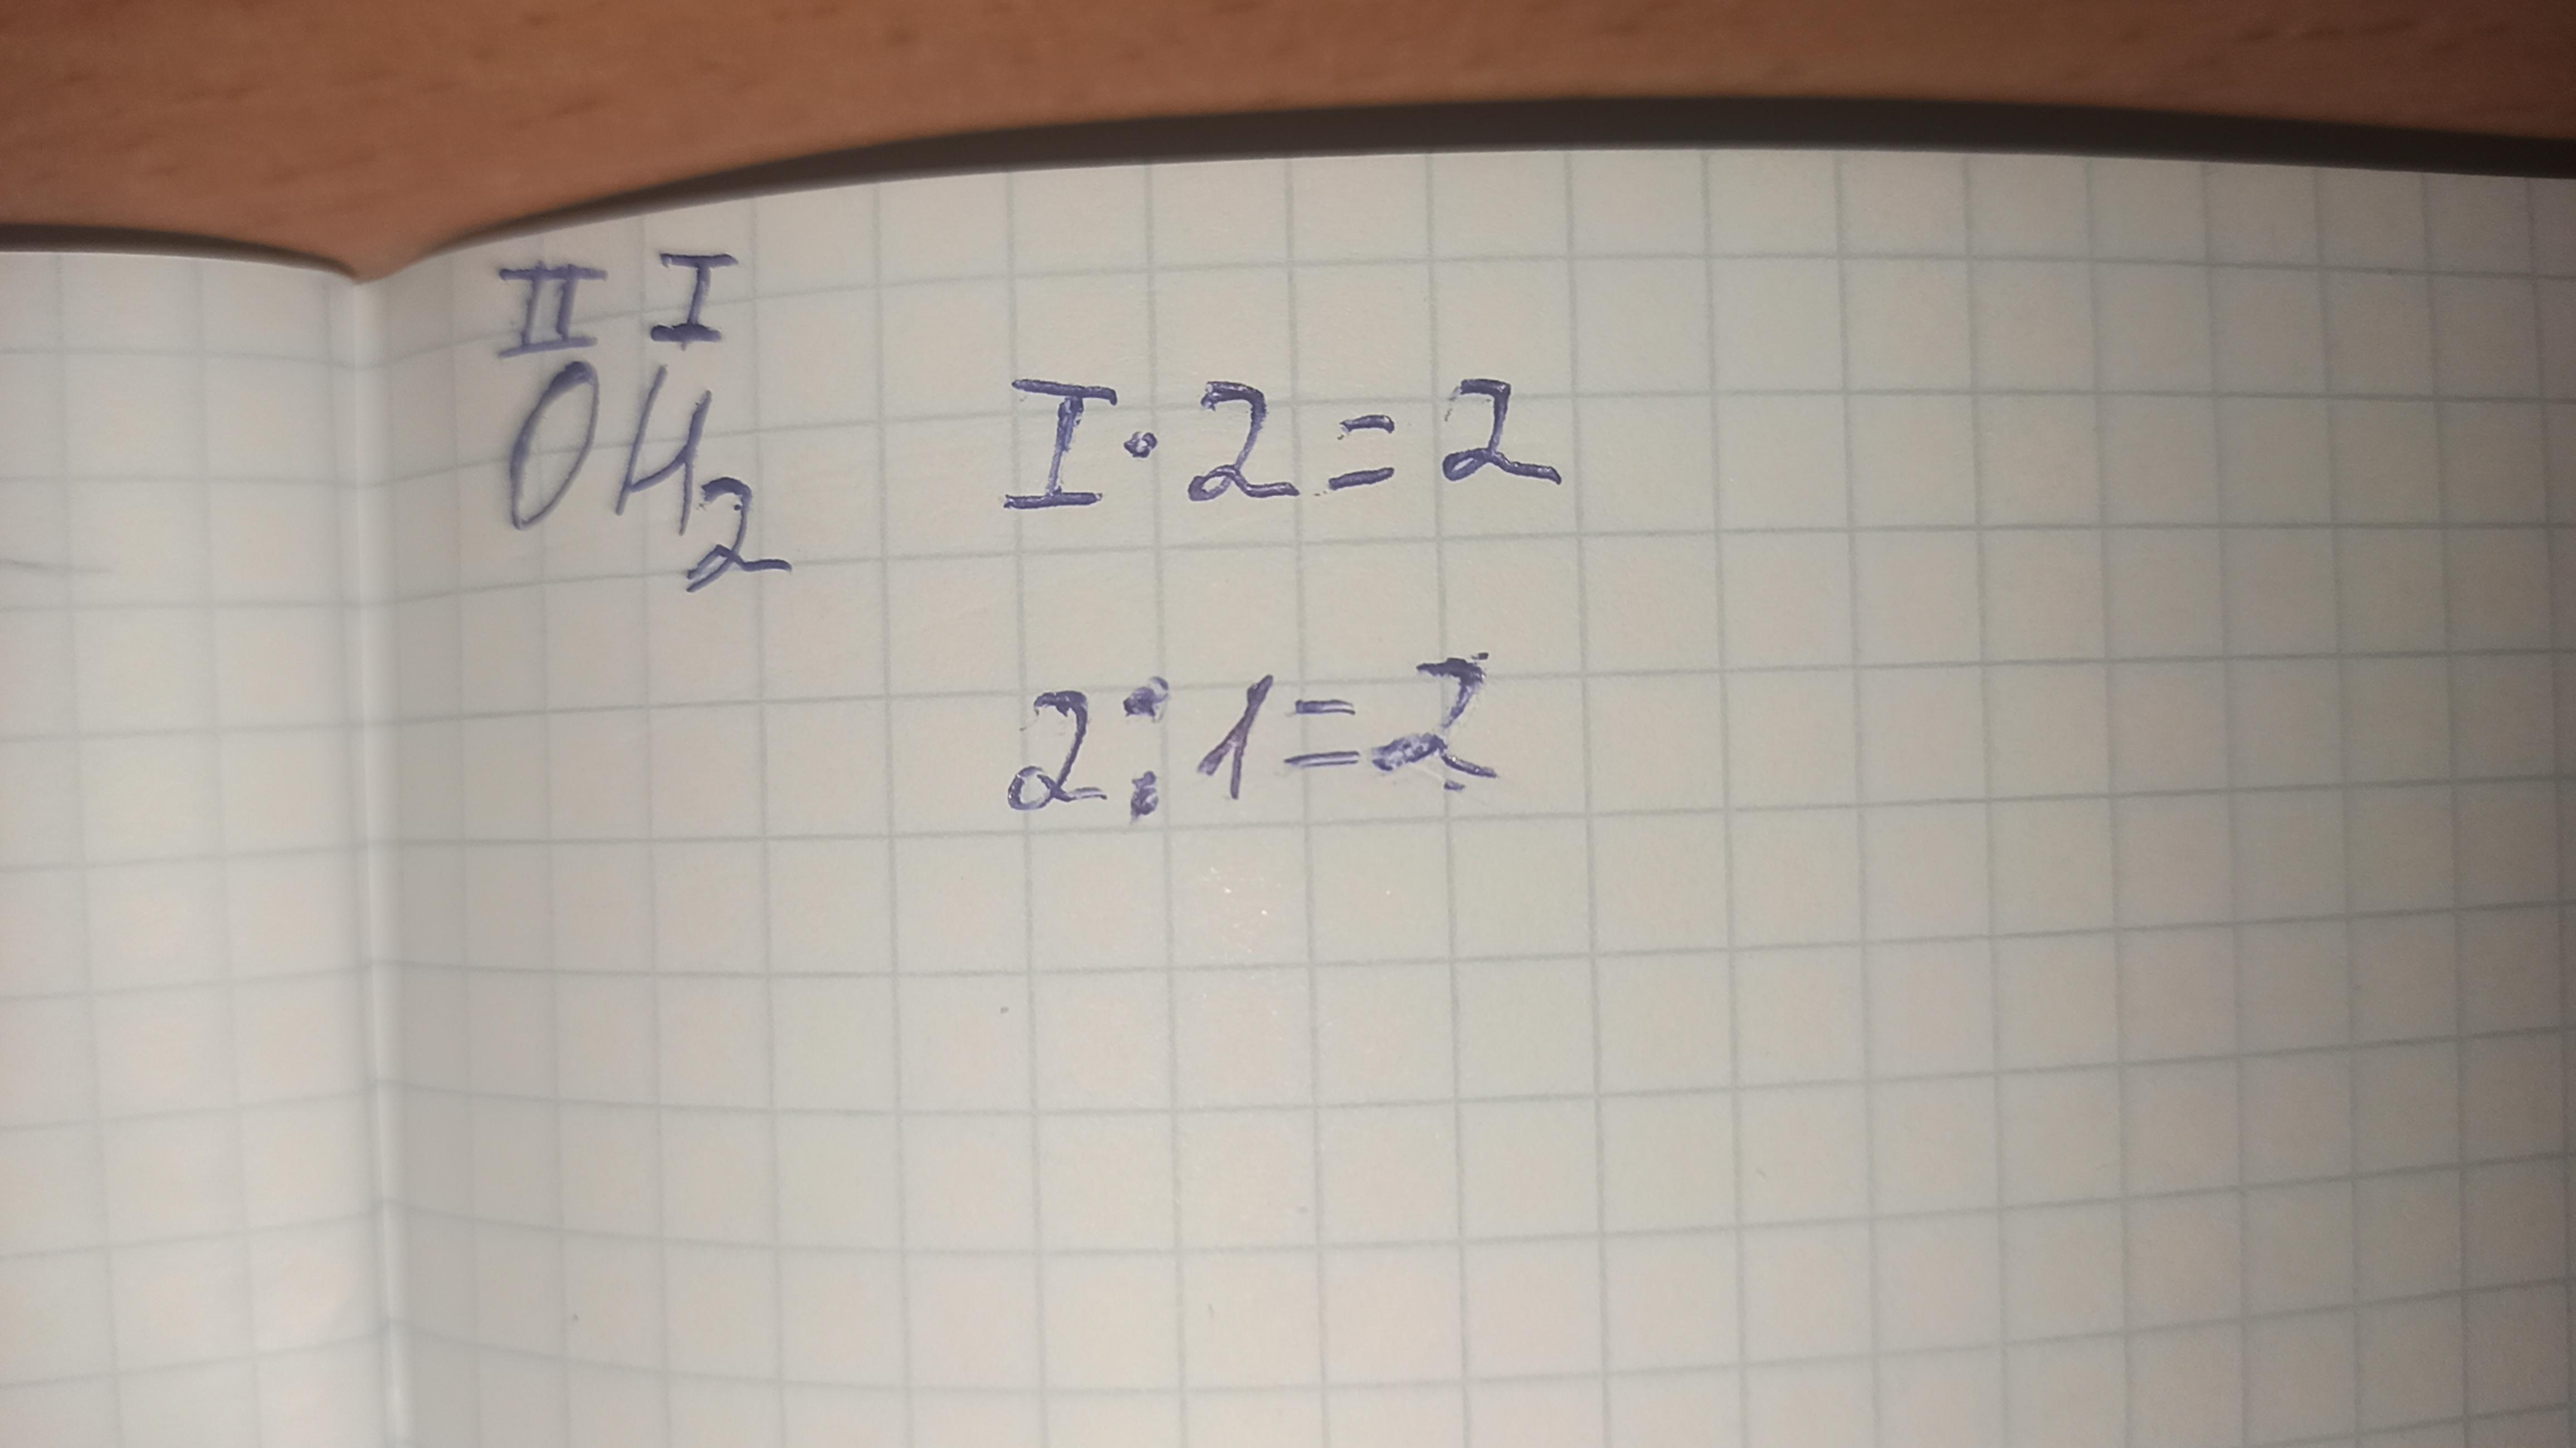 II I
OH2
I·2=2
2:1=2